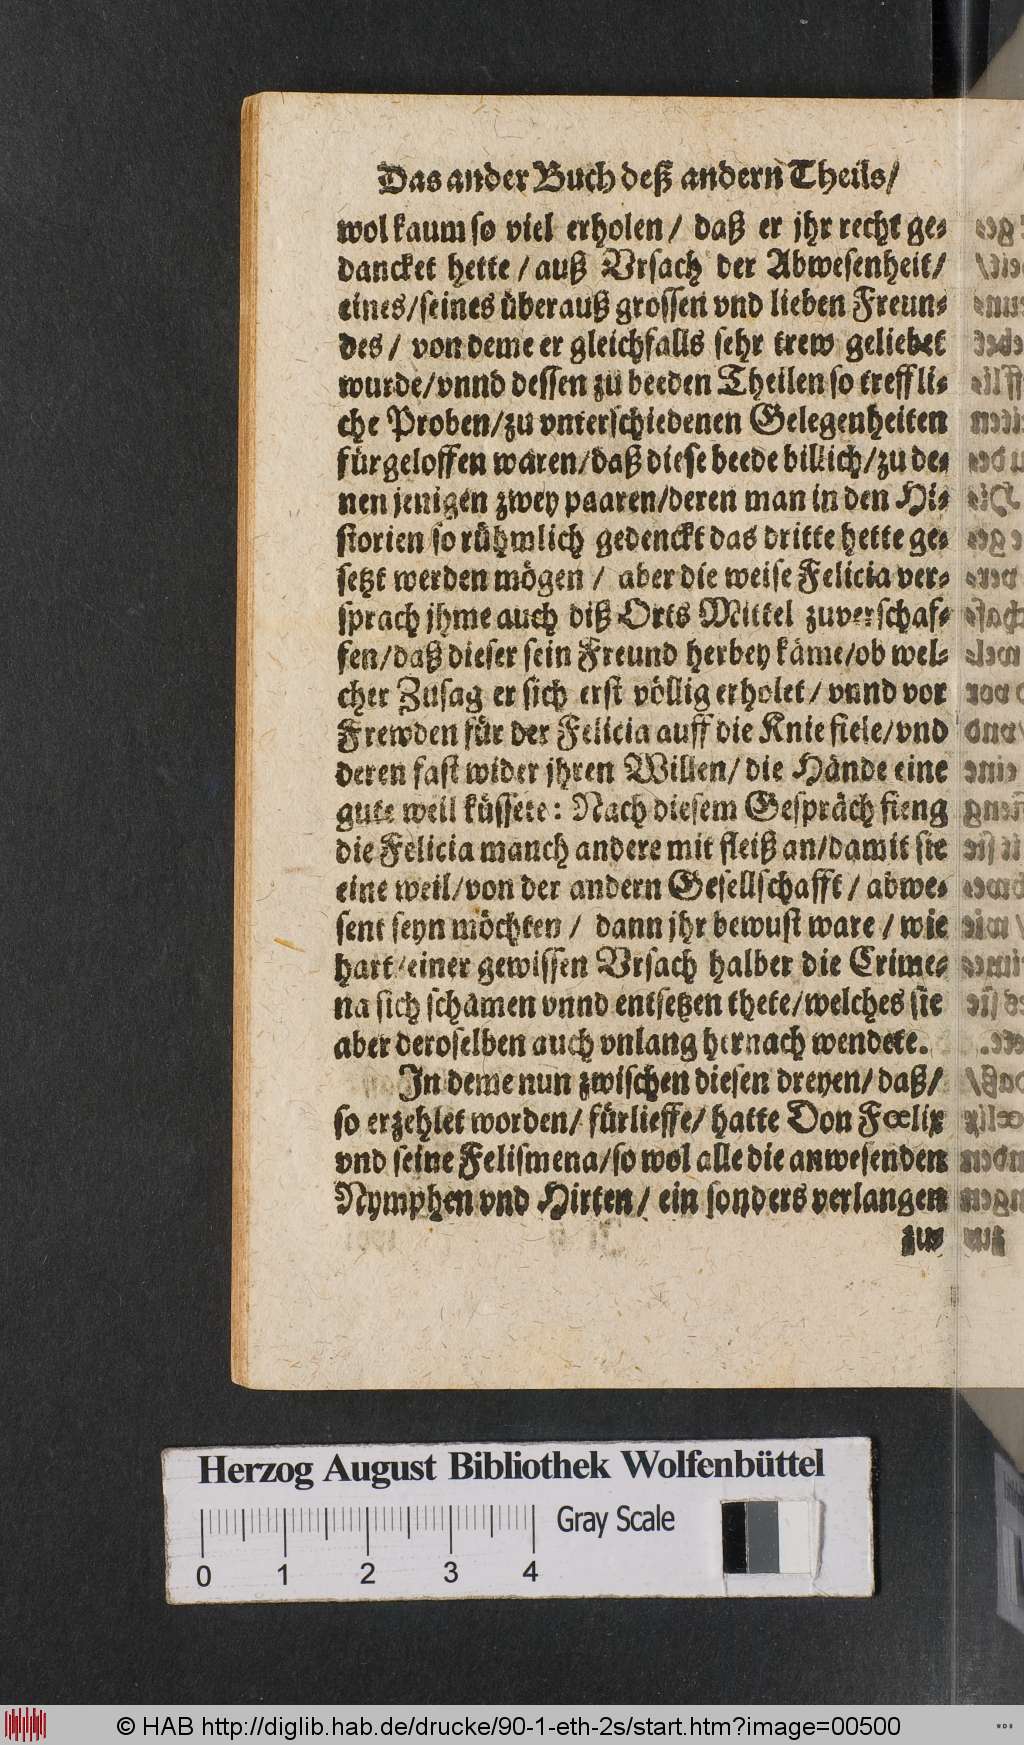 Das ander Buch deß andern Theils/
wol kaum so viel erholen/ daß er jhr recht ge-
dancket hette / auß Vrsach der Abwesenheit/
eines/seines überauß grossen vnd lieben Freun-
des / von deme er gleichfalls sehr trew geliebet
wurde/vnnd dessen zu beeden Theilen so treffli-
che Proben/zu vnterschiedenen Gelegenheiten
fürgeloffen waren/daß diese beede billich/zu de-
nen jenigen zwey paaren/deren man in den Hi-
storien so rühmlich gedenckt das dritte hette ge-
setzt werden mögen / aber die weise Felicia ver-
sprach jhme auch diß Orts Mittel zuverschaf-
fen/daß dieser sein Freund herbey käme/ob wel-
cher Zusag er sich erst völlig erholet / vnnd vor
Frewden für der Felicia auff die Knie fiele/vnd
deren fast wider jhren Willen/ die Hände eine
gute weil küssete: Nach diesem Gespräch fieng
die Felicia manch andere mit fleiß an/damit sie
eine weil/von der andern Gesellschafft / abwe-
sent seyn möchten / dann jhr bewust ware / wie
hart/einer gewissen Vrsach halber die Crime-
na sich schämen vnnd entsetzen thete/welches sie
aber deroselben auch vnlang hernach wendete.
In deme nun zwischen diesen dreyen/ daß/
so erzehlet worden/ fürlieffe/ hatte Don Fœlix
vnd seine Felismena/so wol alle die anwesenden
Nymphen vnd Hirten/ ein sonders verlangen
zu
Herzog August Bibliothek Wolfenbüttel
Gray Scale
0 1 2 3 4
© HAB http://diglib.hab.de/drucke/90-1-eth-2s/start.htm?image=00500